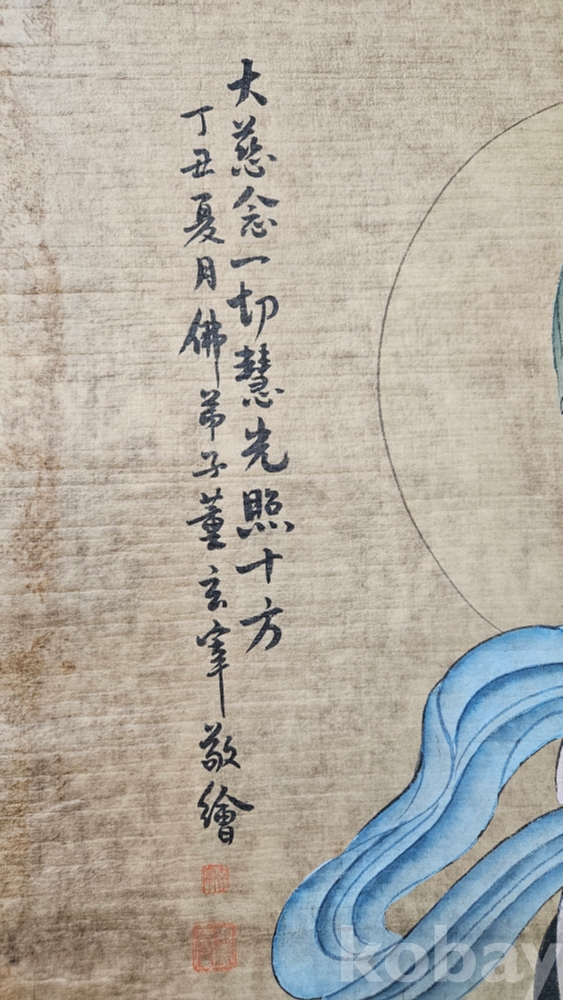 大慈念一切慧光照十方
丁丑夏月佛弟子董玄宰敬繪
kobay